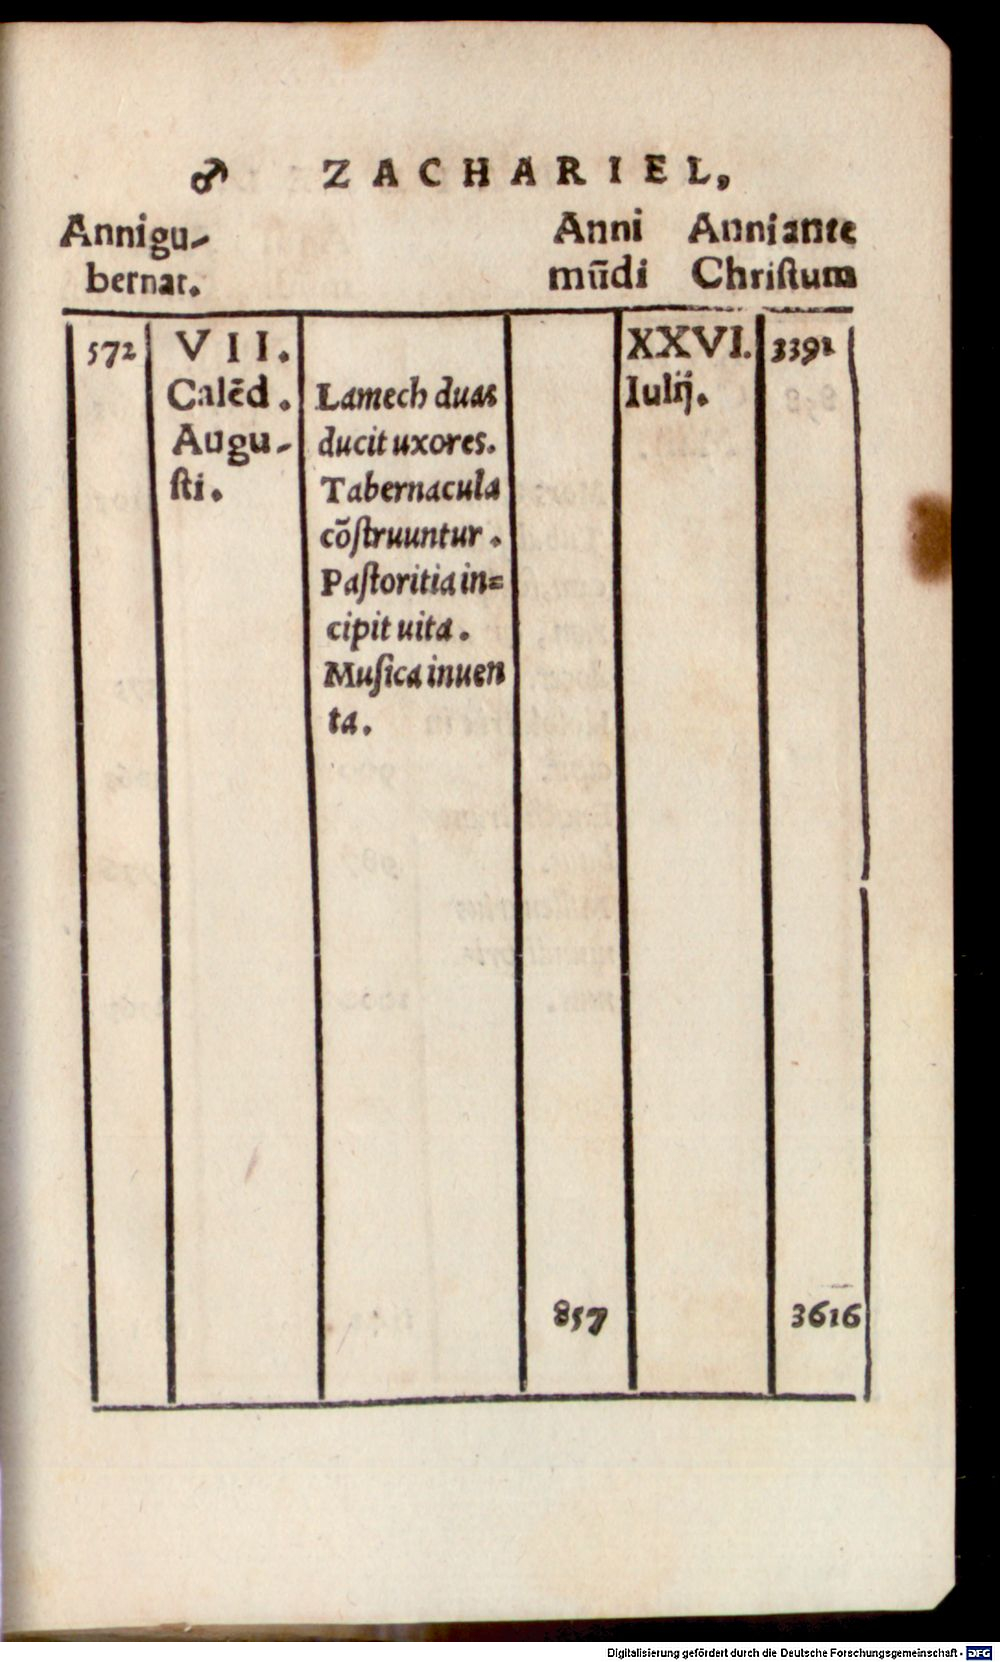 ♂ ZACHARIEL,
Anni gu-
bernat.
Anni
mũdi
Anni ante
Christum
572
VII.
Calẽd.
Augu-
sti.
Lamech duas
ducit uxores.
Tabernacula
cõstruuntur.
Pastoritia in=
cipit uita.
Musica inuen
ta.
857
XXVI.
Iulij.
3391
3616
Digitalisierung gefördert durch die Deutsche Forschungsgemeinschaft - DFG